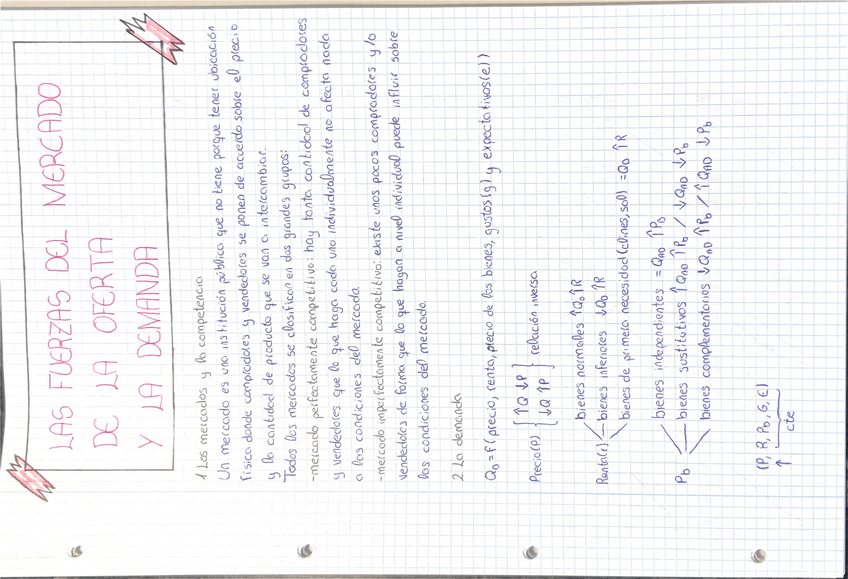 LAS FUERZAS DEL MERCADO
DE LA OFERTA
Y LA DEMANDA
1 Los mercados y la competencia
Un mercado es una institución pública que no tiene porque tener ubicación
física donde compradores y vendedores se ponen de acuerdo sobre el precio
y la cantidad de producto que se van a intercambiar.
Todos los mercados se clasifican en dos grandes grupos:
-mercado perfectamente competitivo: hay tanta cantidad de compradores
y vendedores que lo que haga cada uno individualmente no afecta nada
a las condiciones del mercado
-mercado imperfectamente competitivo: existe unos pocos compradores y/o
vendedores de forma que lo que hagan a nivel individual puede influir sobre
las condiciones del mercado
2 La demanda
QD = f(precio, renta, precio de los bienes, gustos(g) y expectativas(e))
Precio(P) { ↑Q ↓P
↓Q ↑P } relación inversa
Renta(r) bienes normales ↑QD ↑R
bienes inferiores ↓QD ↑R
bienes de primera necesidad (clínes, sal) = QD ↑R
Pb bienes independientes = QAD ↑Pb
bienes sustitutivos ↑QAD ↑Pb / ↓QAD ↓Pb
bienes complementarios ↓QAD ↑Pb / ↑QAD ↓Pb
(P, R, Pb, G, E)
↑ cte